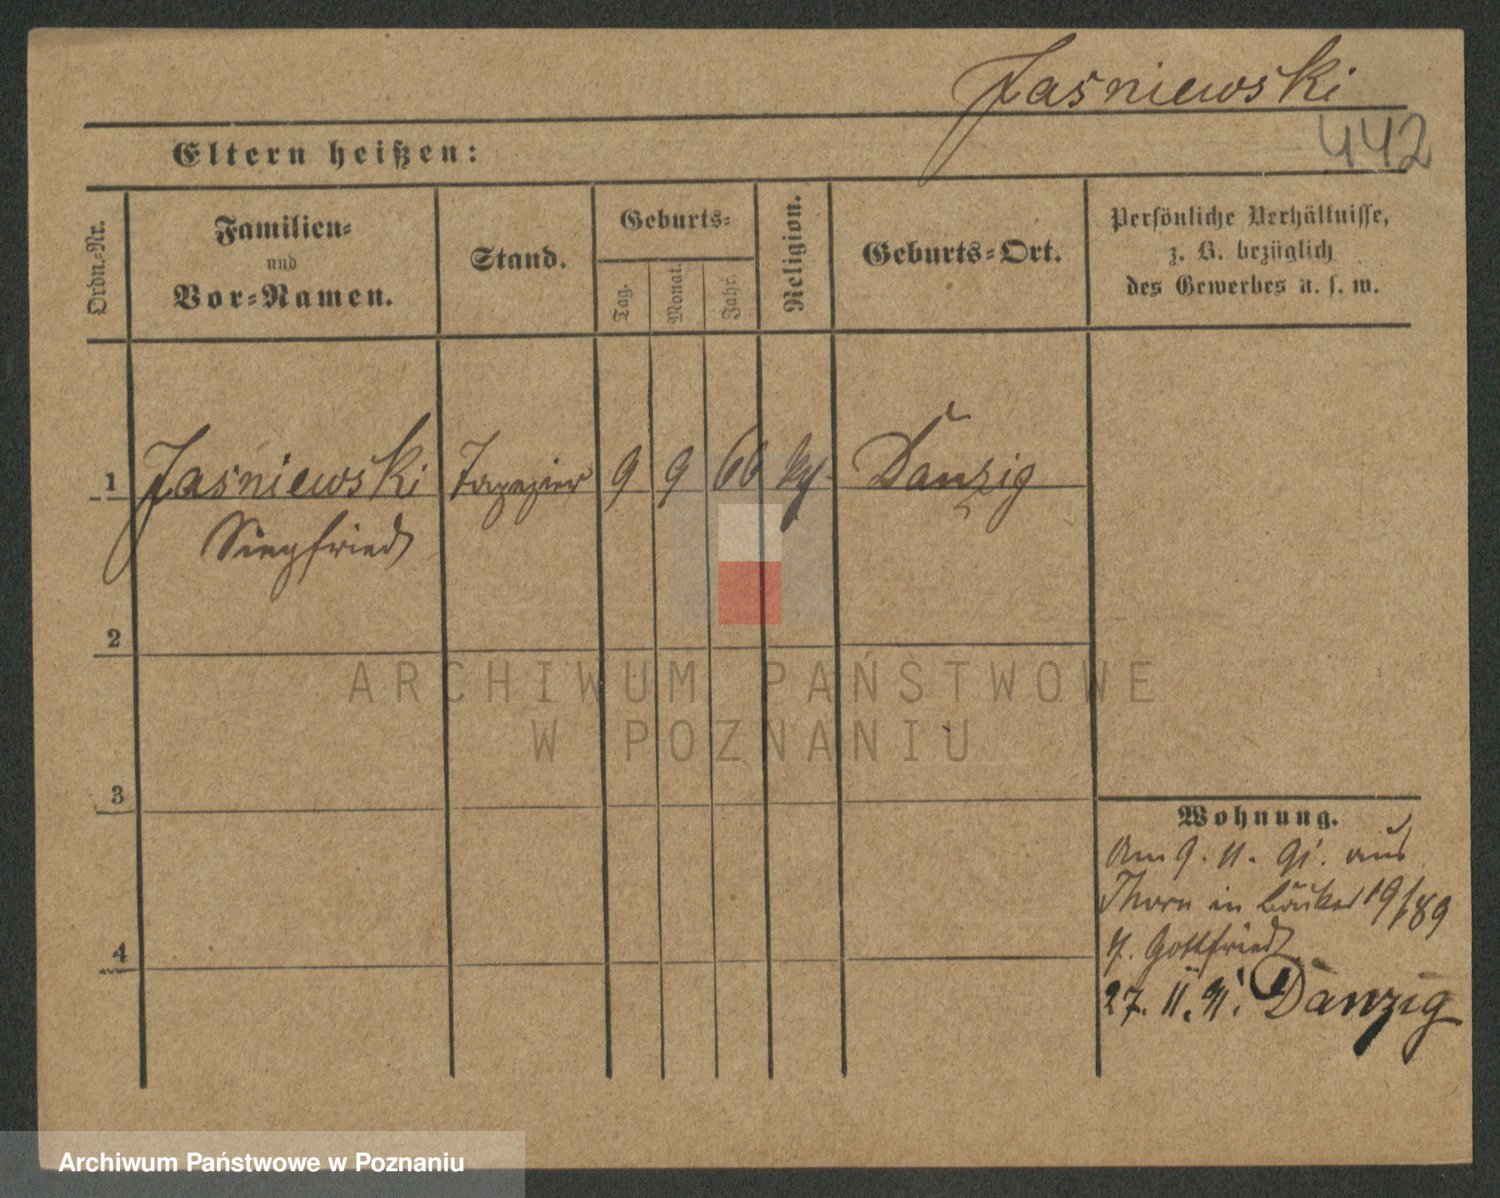 Jaśniewski
442
Eltern heißen:
Ordn.-Nr.
Familien-
und
Vor-Namen.
Stand.
Geburts-
Tag.
Monat.
Jahr.
Religion.
Geburts-Ort.
Persönliche Verhältnisse,
z. B. bezüglich
des Gewerbes u. s. w.
1 Jasniewski Tapezier 9 9 66 Danzig
Siegfried
2
3
4
Wohnung.
Am 9. 11. 91. aus
Thorn in 19/89
Gottfried
27. 11. 91. Danzig
ARCHIWUM PAŃSTWOWE
W POZNANIU
Archiwum Państwowe w Poznaniu